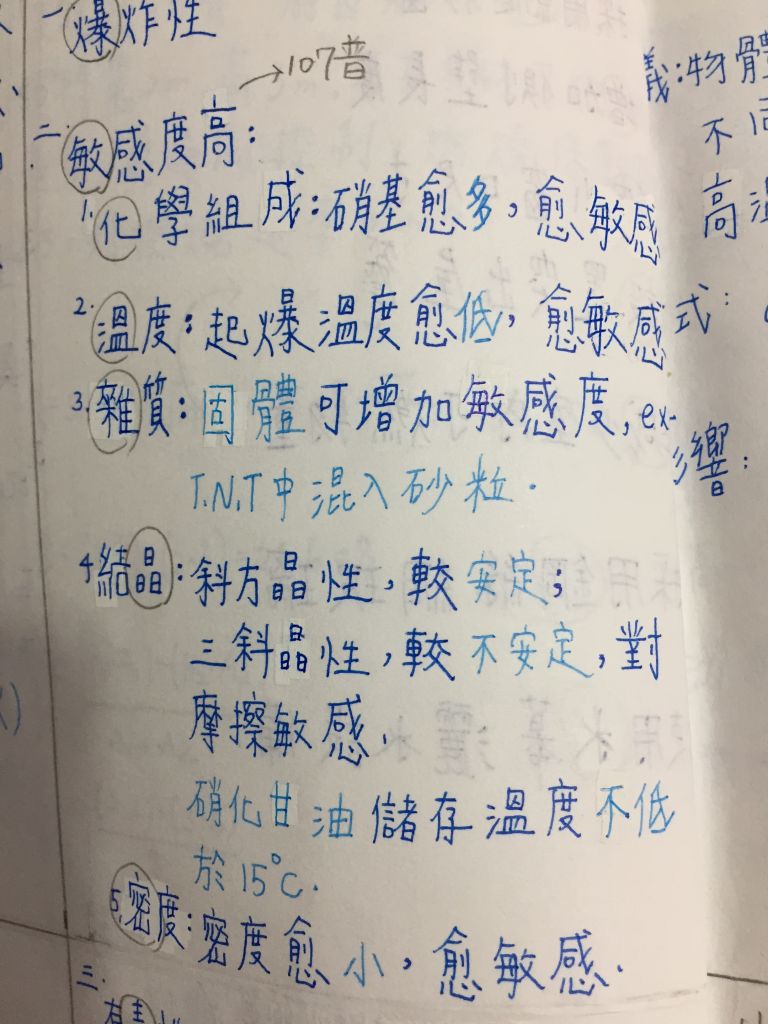 一、爆炸性
→107普
二、敏感度高:
1.化學組成:硝基愈多,愈敏感
2.溫度:起爆溫度愈低,愈敏感
3.雜質:固體可增加敏感度,ex.
T.N.T中混入砂粒.
4.結晶:斜方晶性,較安定;
三斜晶性,較不安定,對
摩擦敏感.
硝化甘油儲存溫度不低
於15°C.
5.密度:密度愈小,愈敏感.
三.
義:物體
不同
高溫
式:
響: